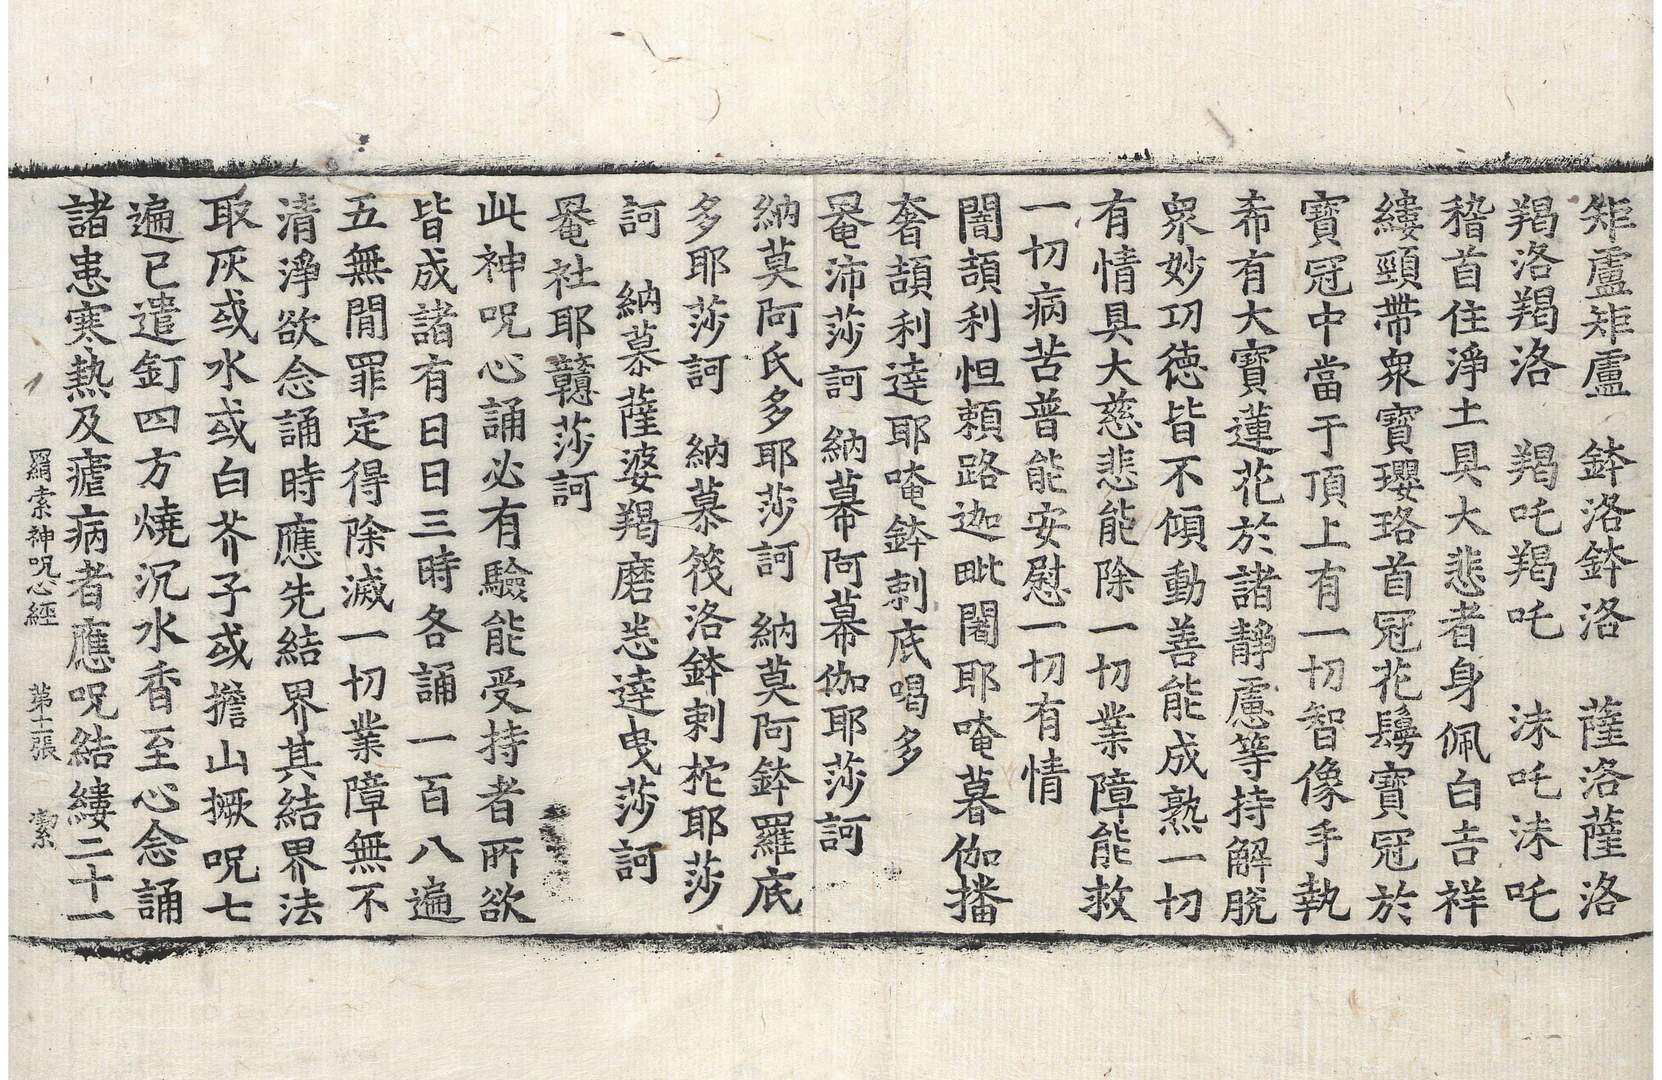 矩盧矩盧　鉢洛鉢洛　薩洛薩洛
羯洛羯洛　羯吒羯吒　沫吒沫吒
稽首住淨土具大悲者身佩白吉祥
縷頸帶衆寶瓔珞首冠花鬘寶冠於
寶冠中當于頂上有一切智像手執
希有大寶蓮花於諸靜慮等持解脫
衆妙功德皆不傾動善能成熟一切
有情具大慈悲能除一切業障能救
一切病苦普能安慰一切有情
闇頡利怛賴路迦毗闍耶唵暮伽播
奢頡利達耶唵鉢剌底喝多
罨沛莎訶納幕阿幕伽耶莎訶
納莫阿氏多耶莎訶　納莫阿鉢羅底
多耶莎訶　納慕筏洛鉢剌柁耶莎
訶　納慕薩婆羯磨悉達曳莎訶
罨社耶䪙莎訶
此神呪心誦必有驗能受持者所欲
皆成諸有日日三時各誦一百八遍
五無間罪定得除滅一切業障無不
清淨欲念誦時應先結界其結界法
取灰或水或白芥子或擔山橛呪七
遍已遣釘四方燒沉水香至心念誦
諸患寒熱及瘧病者應呪結縷二十一
羂索神呪心經　第十二張　潔